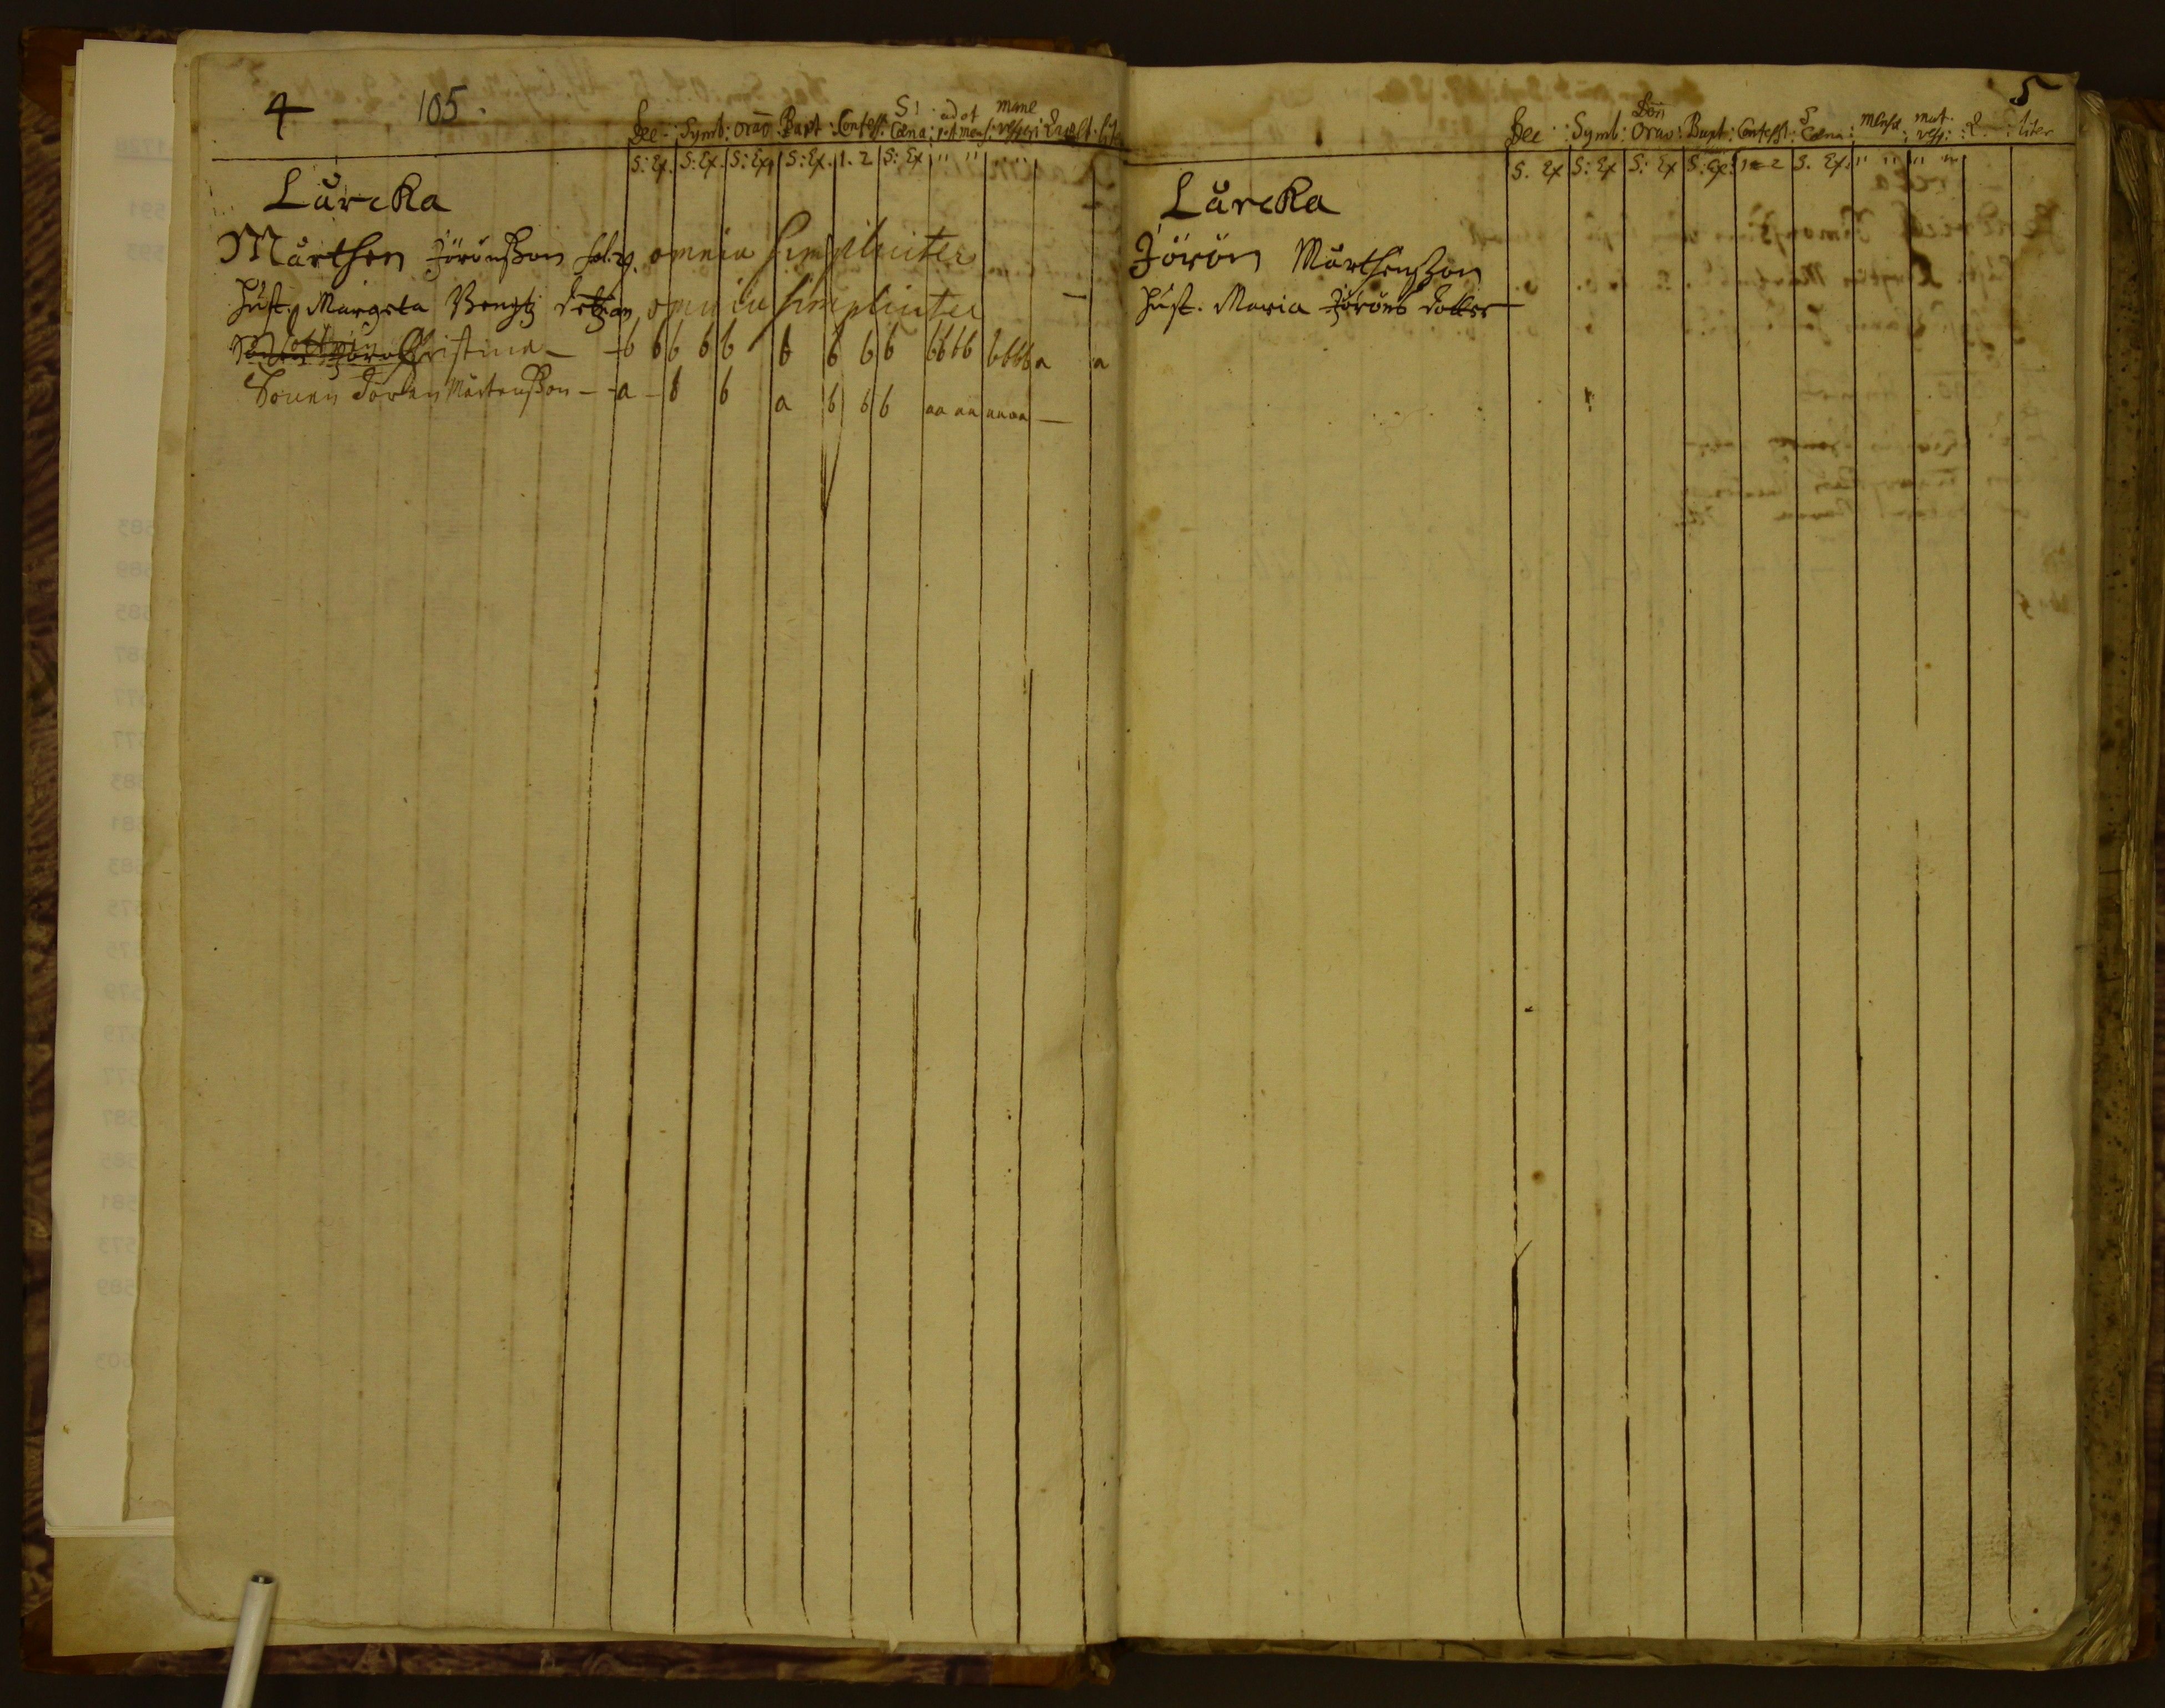 4 105.
Dec: Symb: Orao: Bapt: Confess: S: Cœna: ad et post mens: mane vesperi
S: Ex. S: Ex. S: Ex. S: Ex. 1. 2 S: Ex " " " "
Lurcka
Mårthen Jörönßon omnia simpliciter
Hust. Margeta Bengtz omnia simpliciter
Dottren Christina — b b b b b b b b b bbbb bbbb a a
Sonen Mårtenßon — a b b a b b b aa aa aaaa —
5
Dec: Symb: Dōn Orao: Bapt: Confess: S Cœna: Mensæ: mat. vesp: Q. liter
S. Ex S: Ex S: Ex S: Ex: 1 2 S. Ex. " " " "
Lurcka
Jörön Mårthenßon
Hust. Maria Jöröns dotter